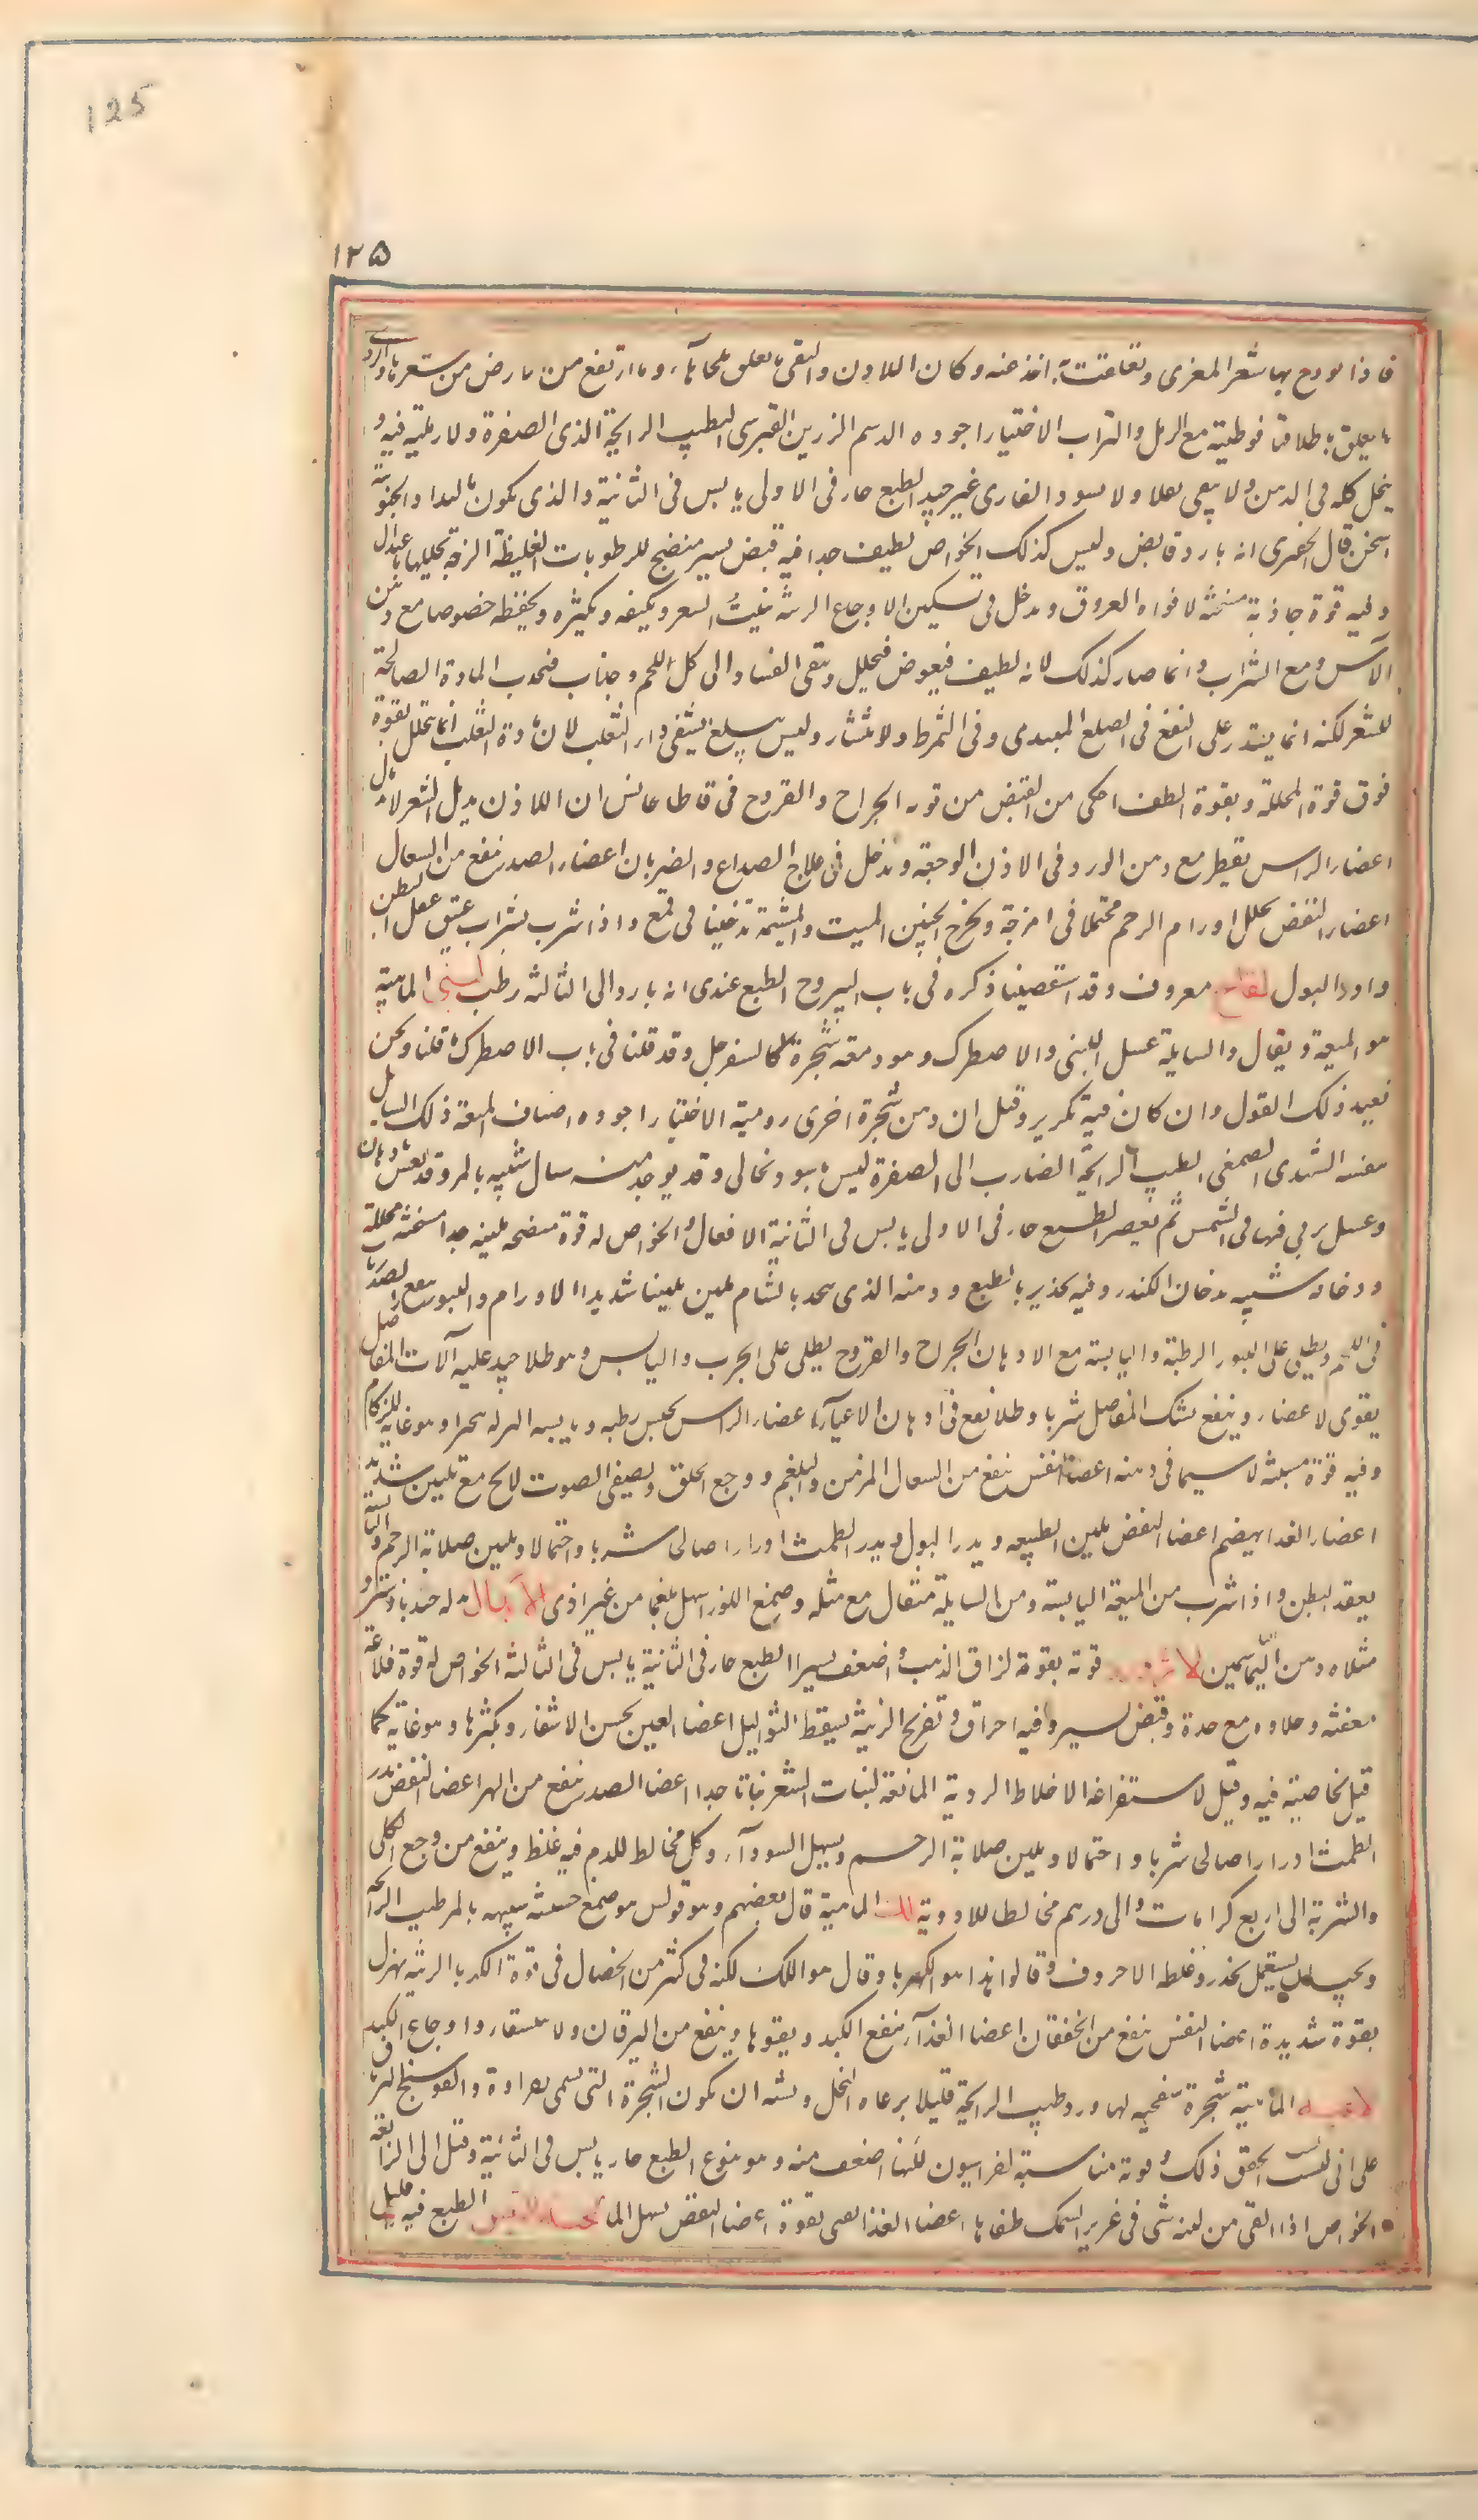 125
١٢٥
فاذا بها شعر المعزى وتعلقت به اخذ عنه وكان اللاذن والنقى ما تعلق بلحائها وما ارتفع من الارض من شعرها
ما تعلق باظلافها فوطئته مع الرمل والتراب الاختيار اجوده الدسم الرزين القبرسى الطيب الرايحة الذى الصفرة ولا رملية فيه و
ينحل كله فى الدهن ولا يبقى ثفلا ولا اسود القارى غير جيد الطبع حار فى الاولى يابس فى الثانية والذى يكون
اسخن قال الخوزى انه بارد قابض وليس كذلك الخواص لطيف جدا فيه قبض يسير منضج للرطوبات الغليظة اللزجة يحللها باعتدال
وفيه قوة جاذبة مسخنة لافواه العروق ويدخل فى تسكين الاوجاع الزينة ينبت الشعر ويكثفه ويكثره ويحفظه خصوصا مع دهن
الآس ومع الشراب وانما صار كذلك لانه لطيف فيغوص فيحلل وينقى الفساد الى كل اللحم وجذاب فيجذب المادة الصالحة
للشعر لكنه انما يقتدر على النفع فى الصلع المبتدى وفى التمرط والانتثار وليس يبلغ يشفى داء الثعلب لان مادة الثعلب انما تتحلل بقوة
فوق قوة المحللة وبقوة الطف احكى من القبض من قوته الجراح والقروح فى قاطاجانس ان اللاذن يدمل
اعضاء الراس يقطر مع دهن الورد فى الاذن الوجعة ويدخل فى علاج الصداع والضربان اعضاء الصدر ينفع من السعال
اعضاء النفض يحلل اورام الرحم محتملا فى امزجة ويخرج الجنين الميت والمشيمة تدخينا فى قمع واذا شرب بشراب عتيق عقل البطن
وادر البول لفاح معروف وقد استقصينا ذكره فى باب اليبروح الطبع عندى انه بارد الى الثالثة رطب لبنى الماهية
هو الميعة ويقال والسايلة عسل اللبنى والاصطرك وهو دمعة شجرة كالسفرجل وقد قلنا فى باب الاصطرك ما قلنا ونحن
نعيد ذلك القول وان كان فيه تكرير وقيل ان دهن شجرة اخرى رومية الاختيار اجود اصناف الميعة ذلك السايل
بنفسه الشهدى الصمغى الطيب الرايحة الضارب الى الصفرة ليس باسود نخالى وقد يوجد منه سال شبيه بالمر وقد يغش
وعسل يربى فيها فى الشمس ثم يعصر الطبع حار فى الاولى يابس فى الثانية الافعال والخواص له قوة منضجة ملينة جدا مسخنة محللة
ودخانه شبيه بدخان الكندر وفيه تخدير بالطبع ودهنه الذى يتخذ بالشام يلين تليينا شديدا الاورام والبثور ينفع الصلابات
فى اللحم ويطلى على البثور الرطبة واليابسة مع الادهان الجراح والقروح يطلى على الجرب واليابس وهو طلا جيد عليه آلات المفاصل
يقوى الاعضاء وينفع تشبك المفاصل شربا وطلا نفع فى ادهان الاعياء اعضاء الراس يحبس رطبه ويابسه النزلة بخورا وهو غاية للزكام
وفيه قوة مسبتة لاسيما فى دهنه اعضاء النفس ينفع من السعال المزمن والبلغم ووجع الحلق ويصفى الصوت الابح مع تليين شديد
اعضاء الغدا يهضم اعضا النفض يلين الطبيعة ويدر البول ويدر الطمث ادرارا صالحا شربا واحتمالا ويلين صلابة الرحم
يعقد البطن واذا شرب من الميعة اليابسة ومن السايلة مثقال مع مثله وصمغ اللوز اسهل بلغما من غير اذى الابدال بدله جندبادستر و
مثلاه دهن الياسمين قوته بقوة لزاق الذهب واضعف يسيرا الطبع حار فى الثانية يابس فى الثالثة الخواص له قوة
معفنة وجلاؤه مع حدة وقبض يسير وفيه احراق وتقريح الزينة يسقط الثواليل اعضا العين يحسن الاشفار ويكثرها وهو غاية كما
قيل لخاصية فيه وقيل لاستفراغه الاخلاط الردية المانعة لنبات الشعر نباتا جيدا اعضا الصدر ينفع من البهر اعضا النفض يدر
الطمث ادرارا صالحا شربا واحتمالا ويلين صلابة الرحم ويسهل السوداء وكل مخالط للدم فيه غلظ وينفع من وجع الكلى
والشربة الى اربع كرامات والى درهم مخالطا للادوية لك الماهية قال بعضهم وهو قولس هو صمغ حشيشة شبيه بالمر طيب الرايحة
ويجب ان يستعمل بحذر وغلطه الاحروف وقالوا هذا هو الكهربا وقال هو اللك لكنه فى كثير من الخصال فى قوة الكهربا الزينة يهزل
بقوة شديدة اعضا النفس ينفع من الخفقان اعضا الغذاء ينفع الكبد ويقويها وينفع من اليرقان والاستسقاء واوجاع الكبد
لاعية الماهية شجرة سفحية لها ورد طيب الرايحة قليلا يرعاه النحل ويشبه ان يكون الشجرة التى تسمى
على انى لست احقق ذلك وقوته مناسبة لفراسيون لكنها اضعف منه وهو نوع الطبع حار يابس فى الثانية وقيل الى الرابعة
الخواص اذا القى من لبنه شى فى غدير السمك طفاها اعضاء الغذا يقى بقوة اعضا النفض يسهل الما الطبع فيه قليل